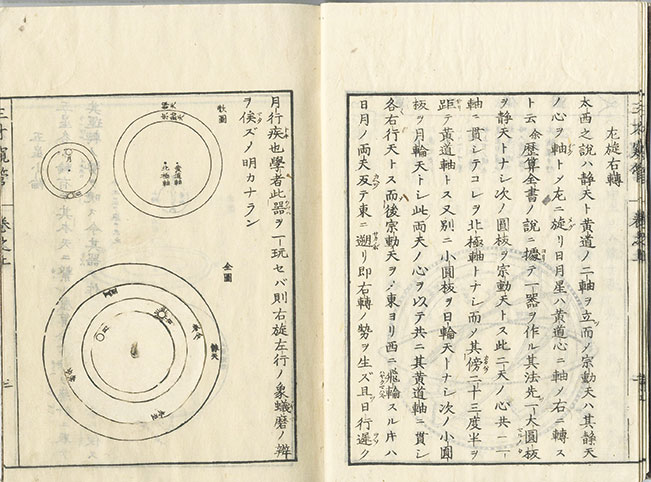 左旋右轉
太西之說ハ靜天ト黃道ノ二軸ヲ立而メ宗動天ハ其靜天
ノ心ヲ軸トメ左ニ旋リ日月星ハ黃道心ニ軸ノ右ニ轉ス
ト云余歷算全書ノ說ニ據テ一器ヲ作ル其法先一大圓板
ヲ靜天トナシ次ノ圓板ヲ宗動天トス此二天ノ心共ニ一
軸ニ貫シテコレヲ北極軸トナシ而メ其傍二十三度半ヲ
距テ黃道軸トス又別ニ小圓板ヲ日輪天トナシ次ノ小圓
板ヲ月輪天トシ此兩天ノ心ヲ以テ共ニ其黃道軸ニ貫シ
各右行天トス而後宗動天ヲ東ヨリ西ニ飛輪スル片ハ
日月ノ兩天反テ東ニ遡リ即右轉ノ勢ヲ生ズ且日行遲ク
月行疾也學者此器ヲ一玩セバ則右旋左行ノ象蟻磨ノ辨
ヲ俟ズノ明カナラン
黃道軸
北極軸
月
全圖
靜天
三才窺管
卷之上
三